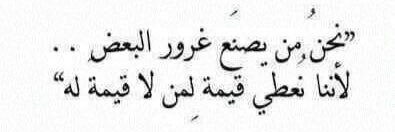 ”نحنُ من يصنَع غرور البعض . .
لأننا نُعطي قيمة لِمن لا قيمةَ له“